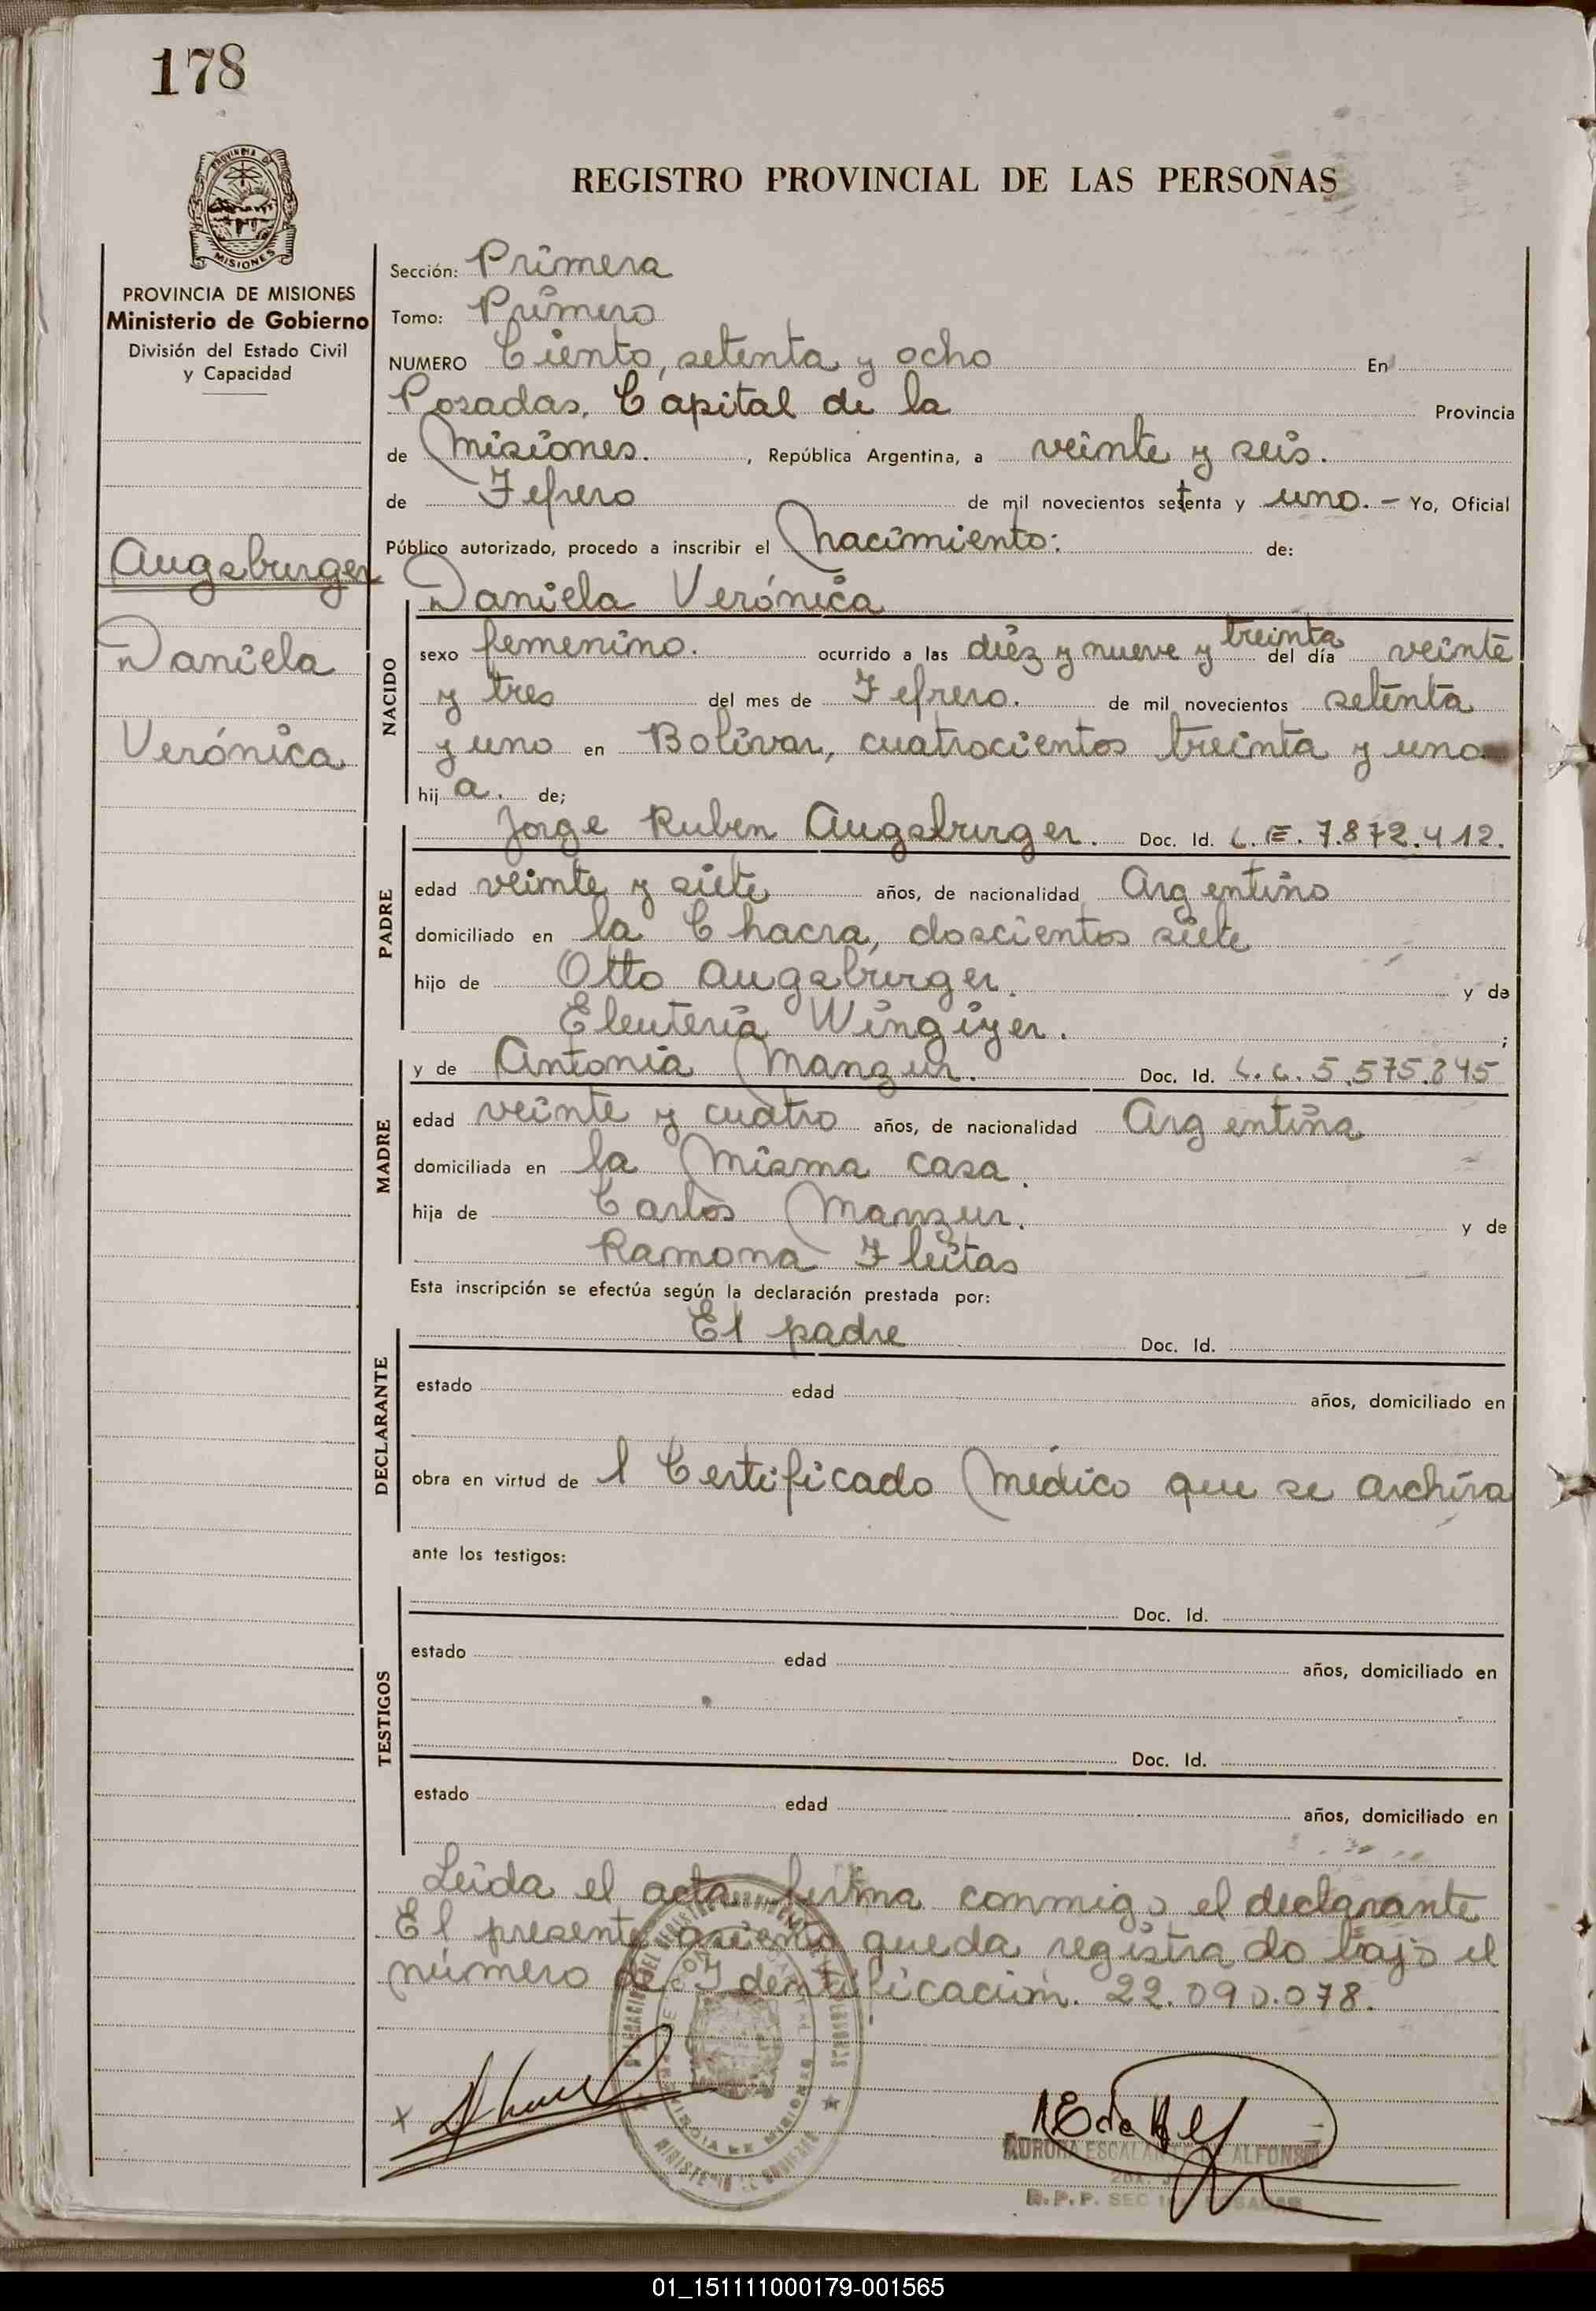 178
PROVINCIA DE
MISIONES
REGISTRO PROVINCIAL DE LAS PERSONAS
PROVINCIA DE MISIONES
Ministerio de Gobierno
División del Estado Civil
y Capacidad
Augsburger
Daniela
Verónica
Sección: Primera
Tomo: Primero
NUMERO Ciento, setenta y ocho En
Posadas, Capital de la Provincia
de Misiones. , República Argentina, a veinte y seis.
de Febrero de mil novecientos setenta y uno. – Yo, Oficial
Público autorizado, procedo a inscribir el Nacimiento: de:
NACIDO
Daniela Verónica
sexo femenino. ocurrido a las diéz y nueve y treinta del día veinte
y tres del mes de Febrero. de mil novecientos setenta
y uno en Bolívar, cuatrocientos treinta y uno
hij a. de;
PADRE
Jorge Ruben Augsburger. Doc. Id. L.E. 7.872.412.
edad veinte y siete años, de nacionalidad Argentino
domiciliado en la Chacra, doscientos siete
hijo de Otto Augsburger. y de
Eleuteria Wingiyer. ;
MADRE
y de Antonia Manzur. Doc. Id. L.C. 5.575.845
edad veinte y cuatro años, de nacionalidad Argentina
domiciliada en la Misma casa.
hija de Carlos Manzur. y de
Ramona Fleitas
Esta inscripción se efectúa según la declaración prestada por:
DECLARANTE
El padre Doc. Id.
estado edad años, domiciliado en
obra en virtud de l Certificado Médico que se archiva
ante los testigos:
TESTIGOS
Doc. Id.
estado edad años, domiciliado en
Doc. Id.
estado edad años, domiciliado en
Leida el acta firma conmigo el declarante
El presente asiento queda registrado bajo el
número de Identificación. 22.090.078.
x
AURORA ESCALAN ALFONSO
R.P.P. SEC
01_151111000179-001565